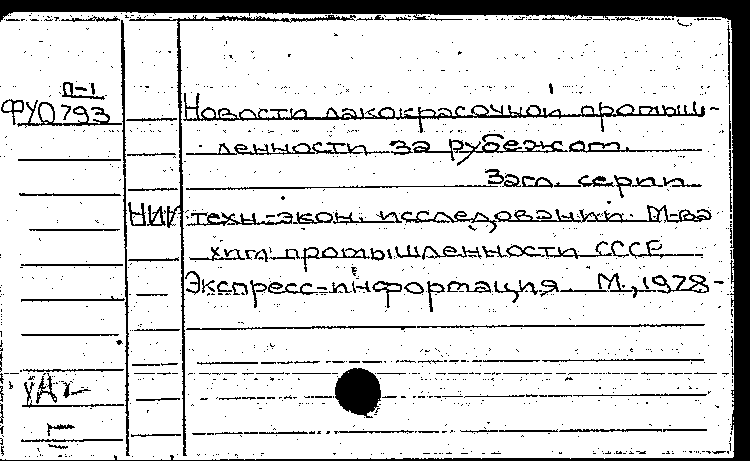 П-1
ФУ0793
Новости лакокрасочной промыш-
ленности за рубежом.
Загл. серии
НИИ техн.-экон. исследований М-ва
хим промышленности СССР
Экспресс-информация. М., 1978-